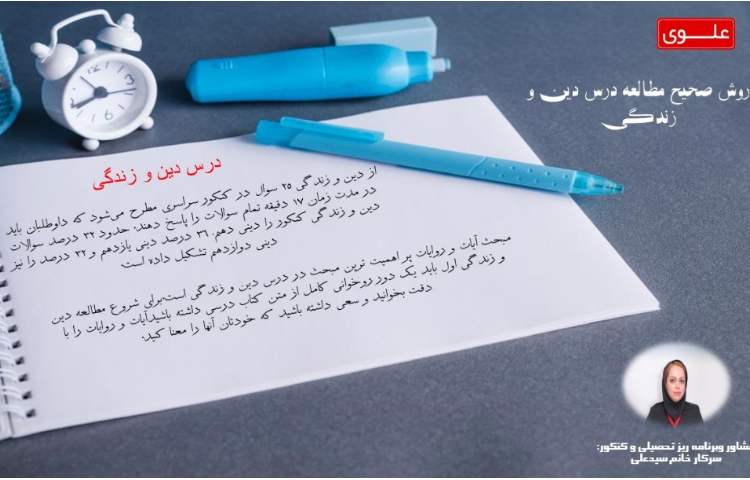 علــوی
روش صحیح مطالعه درس دین و
زندگی
درس دین و زندگی
از دین و زندگی ۲۵ سوال در کنکور سراسری مطرح می‌شود که داوطلبان باید
در مدت زمان ۱۷ دقیقه تمام سوالات را پاسخ دهند؛ حدود ۳۲ درصد سوالات
دین و زندگی کنکور را دینی دهم، ۳۶ درصد دینی یازدهم و ۳۲ درصد را نیز
دینی دوازدهم تشکیل داده است
مبحث آیات و روایات پر اهمیت ترین مبحث در درس دین و زندگی است.برای شروع مطالعه دین
و زندگی اول باید یک دور روخوانی کامل از متن کتاب درسی داشته باشید.آیات و روایات را با
دقت بخوانید و سعی داشته باشید که خودتان آنها را معنا کنید؛
مشاور وبرنامه ریز تحصیلی و کنکور:
سرکار خانم سیدعلی